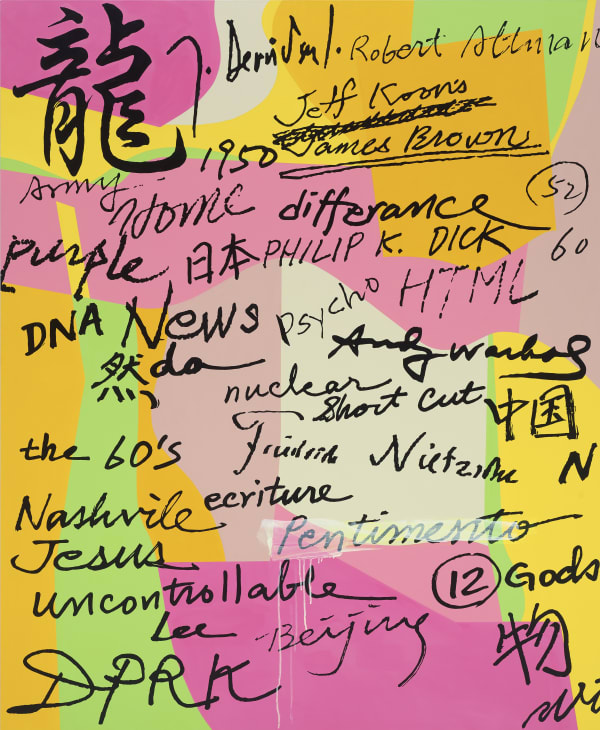 龍
J. Derrida
Robert Altman
Jeff Koons
James Brown
1950
Army
Home differance
52
purple 日本 PHILIP K. DICK 60
Psycho HTML
DNA News
然 da
Andy Warhol
nuclear
Short cut 中国
the 60's Friedrich Nietzsche N
Nashvile ecriture
Pentimento
Jesus
uncontrollable 12 Gods
Lee Beijing 物
DPRK